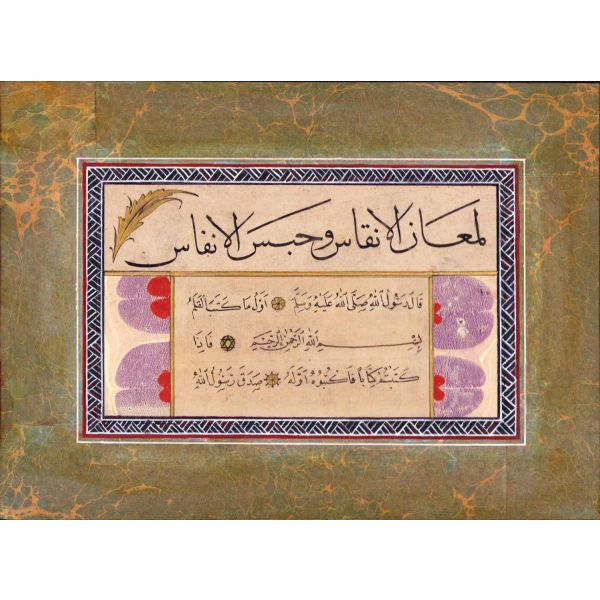 لمعان الانقاس وحبس الانفاس
قال رسول الله صلى الله عليه وسلم اول ما كتب القلم
بسم الله الرحمن الرحيم فاذا
كتبتم كتابا فاكتبوه اوله صدق رسول الله